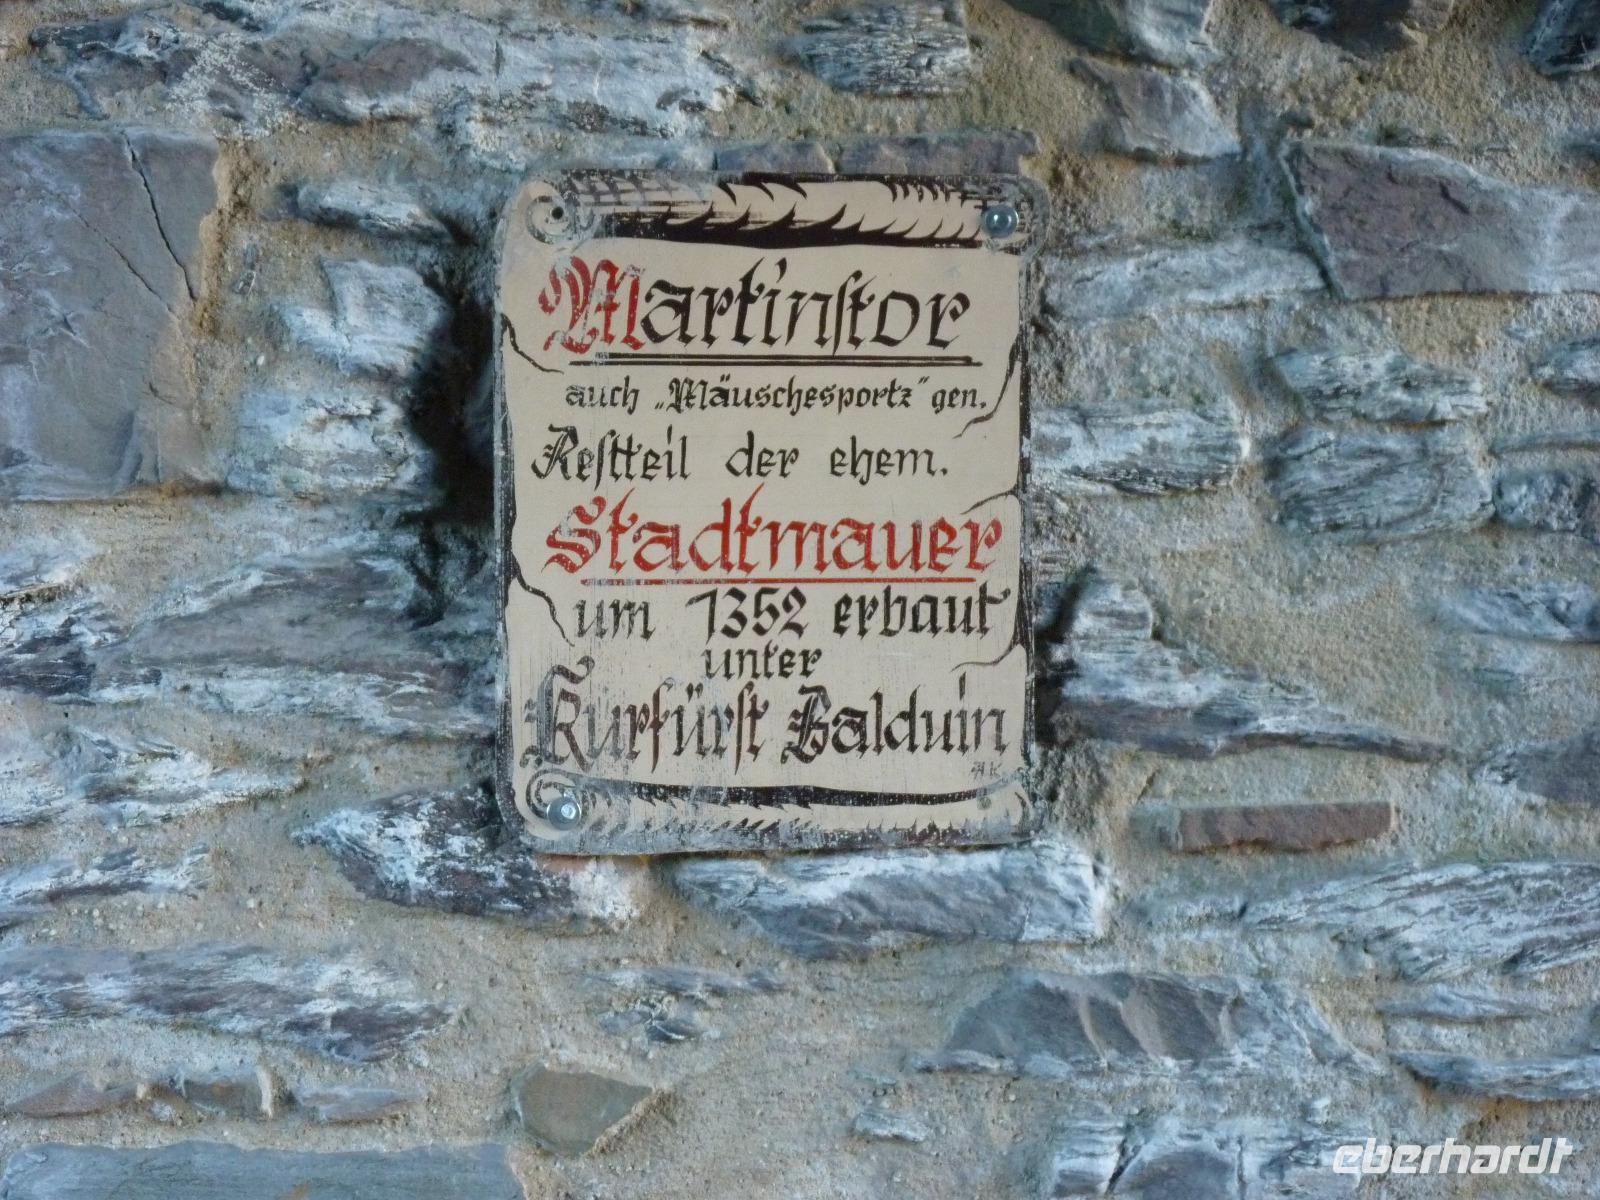 Martinstor
auch „Mäuschesportz" gen.
Restteil der ehem.
Stadtmauer
um 1352 erbaut
unter
Kurfürst Balduin
AK
eberhardt